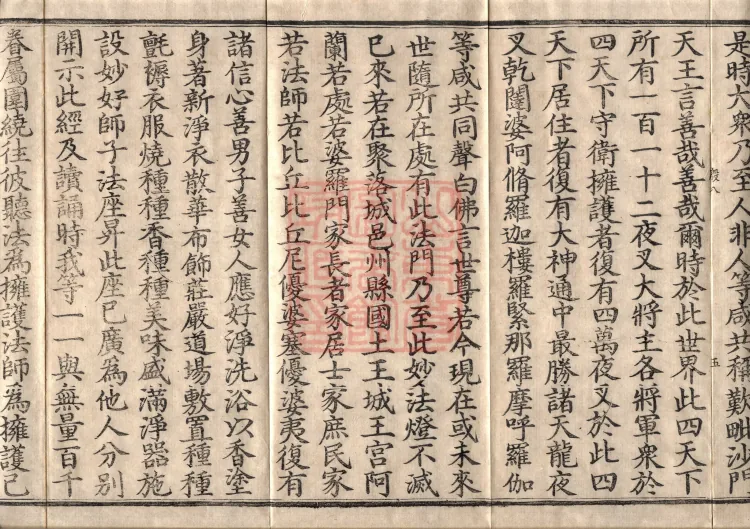 是時大衆乃至人非人等咸共稱歎毗沙門
天王言善哉善哉爾時於此世界此四天下
所有一百一十二夜叉大將主各將軍衆於
四天下守衛擁護者復有四萬夜叉於此四
天下居住者復有大神通中最勝諸天龍夜
叉乾闥婆阿脩羅迦樓羅緊那羅摩呼羅伽
等咸共同聲白佛言世尊若今現在或未來
世隨所在處有此法門乃至此妙法燈不滅
已來若在聚落城邑州縣國土王城王宮阿
蘭若處若婆羅門家長者家居士家庶民家
若法師若比丘比丘尼優婆塞優婆夷復有
諸信心善男子善女人應好淨洗浴以香塗
身著新淨衣散華布飾莊嚴道場敷置種種
氈褥衣服燒種種香種種美味盛滿淨器施
設妙好師子法座昇此座已廣為他人分別
開示此經及讀誦時我等一一與無量百千
眷屬圍繞往彼聽法為擁護法師為擁護已